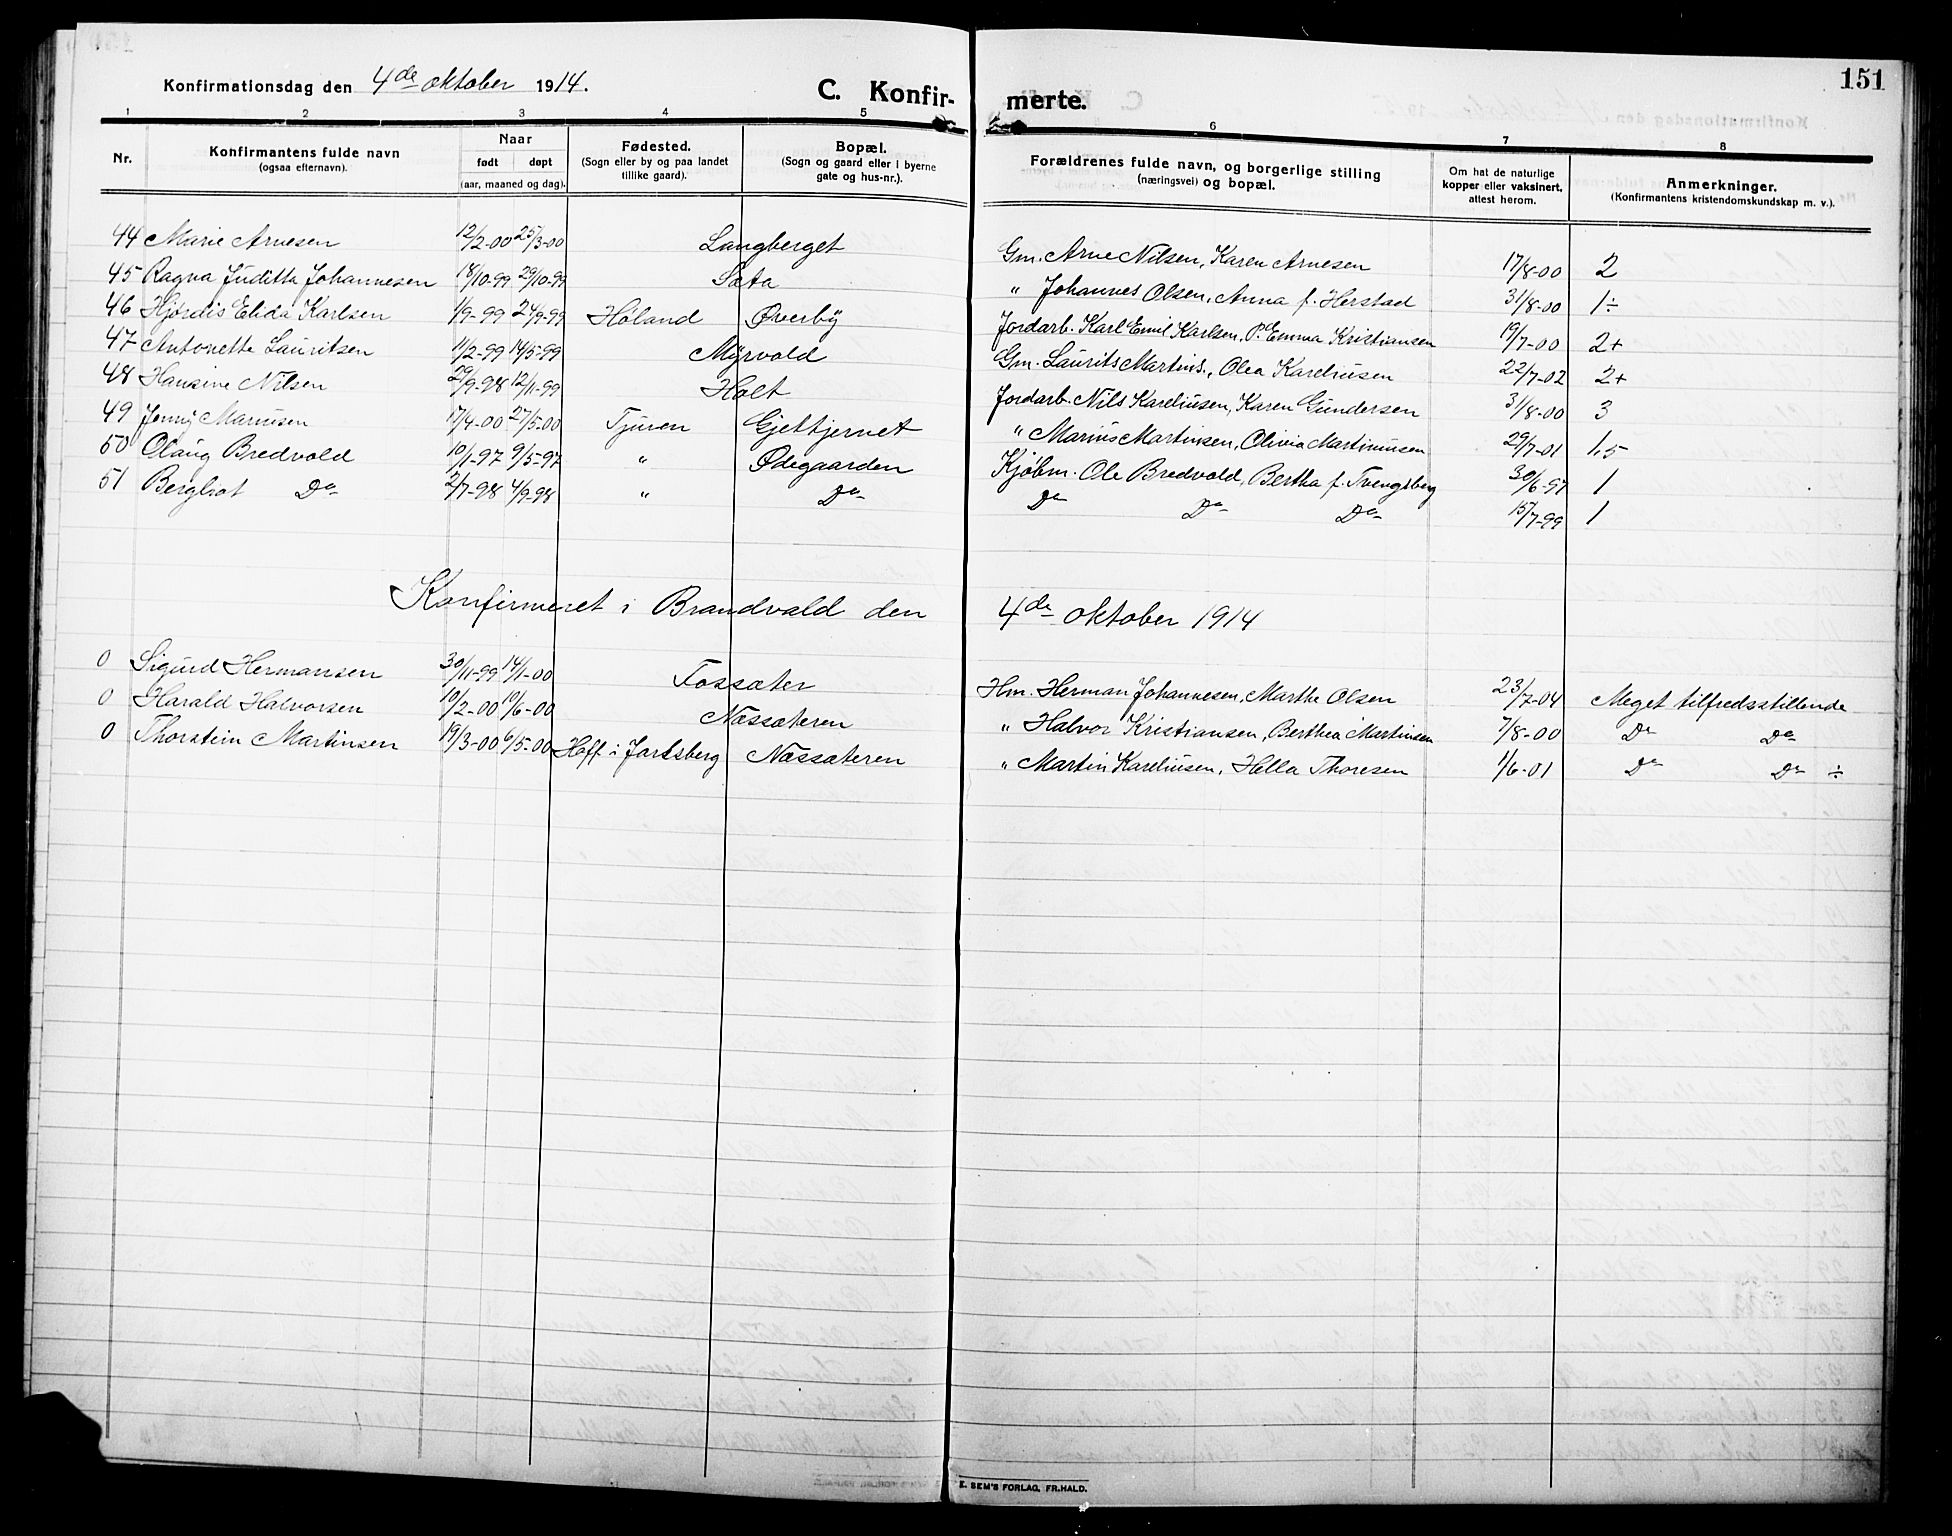 151
Konfirmationsdag den 4de oktober 1914.
C. Konfir- merte.
1 2 3 4 5 6 7 8
Nr. Konfirmantens fulde navn (ogsaa efternavn). Naar født døpt (aar, maaned og dag). Fødested. (Sogn eller by og paa landet tillike gaard). Bopæl. (Sogn og gaard eller i byerne gate og hus-nr.). Forældrenes fulde navn, og borgerlige stilling (næringsvei) og bopæl. Om hat de naturlige kopper eller vaksinert, attest herom. Anmerkninger. (Konfirmantens kristendomskundskap m. v.).
44 Marie Arnesen 12/2-00 25/3-00 Langberget Gm. Arne Nilsen, Karen Arnesen 17/8-00 2
45 Ragna Juditta Johannesen 18/10-99 29/10-99 Sæta " Johannes Olsen, Anna f. Herstad 31/8-00 1÷
46 Hjørdis Elida Karlsen 1/9-99 24/9-99 Høland Øverby Jordarb. Karl Emil Karlsen, P. Emma Kristiansen 19/7-00 2+
47 Antonette Lauritsen 11/2-99 14/5-99 Myrvold Gm. Laurits Martins., Olea Kareliusen 22/7-02 2+
48 Hansine Nilsen 29/9-98 12/11-99 Holt Jordarb. Nils Kareliusen, Karen Gundersen 31/8-00 3
49 Jenny Mariusen 17/4-00 27/5-00 Tjuren Gjettjernet " Marius Martinsen, Olivia Martinusen 29/7-01 1,5
50 Olaug Bredvold 10/1-97 9/5-97 " Ødegaarden Kjøbm. Ole Bredvold, Bertha f. Tvengsberg 30/6-97 1
51 Bergliot Do 2/7-98 4/9-98 " Do Do Do Do 15/7-99 1
Konfirmeret i Brandvold den 4de oktober 1914
0 Sigurd Hermansen 30/11-99 14/1-00 Fossæter Hm. Herman Johannesen, Marthe Olsen 23/7-04 Meget tilfredsstillende
0 Harald Halvorsen 10/2-00 10/6-00 Næssæteren " Halvor Kristiansen, Berthea Martinsen 7/8-00 Do Do
0 Thorstein Martinsen 19/3-00 6/5-00 Hoff i Jarlsberg Næssæteren " Martin Kareliusen, Hella Thoresen 1/6-01 Do Do ÷
E. SEM'S FORLAG, FR.HALD.